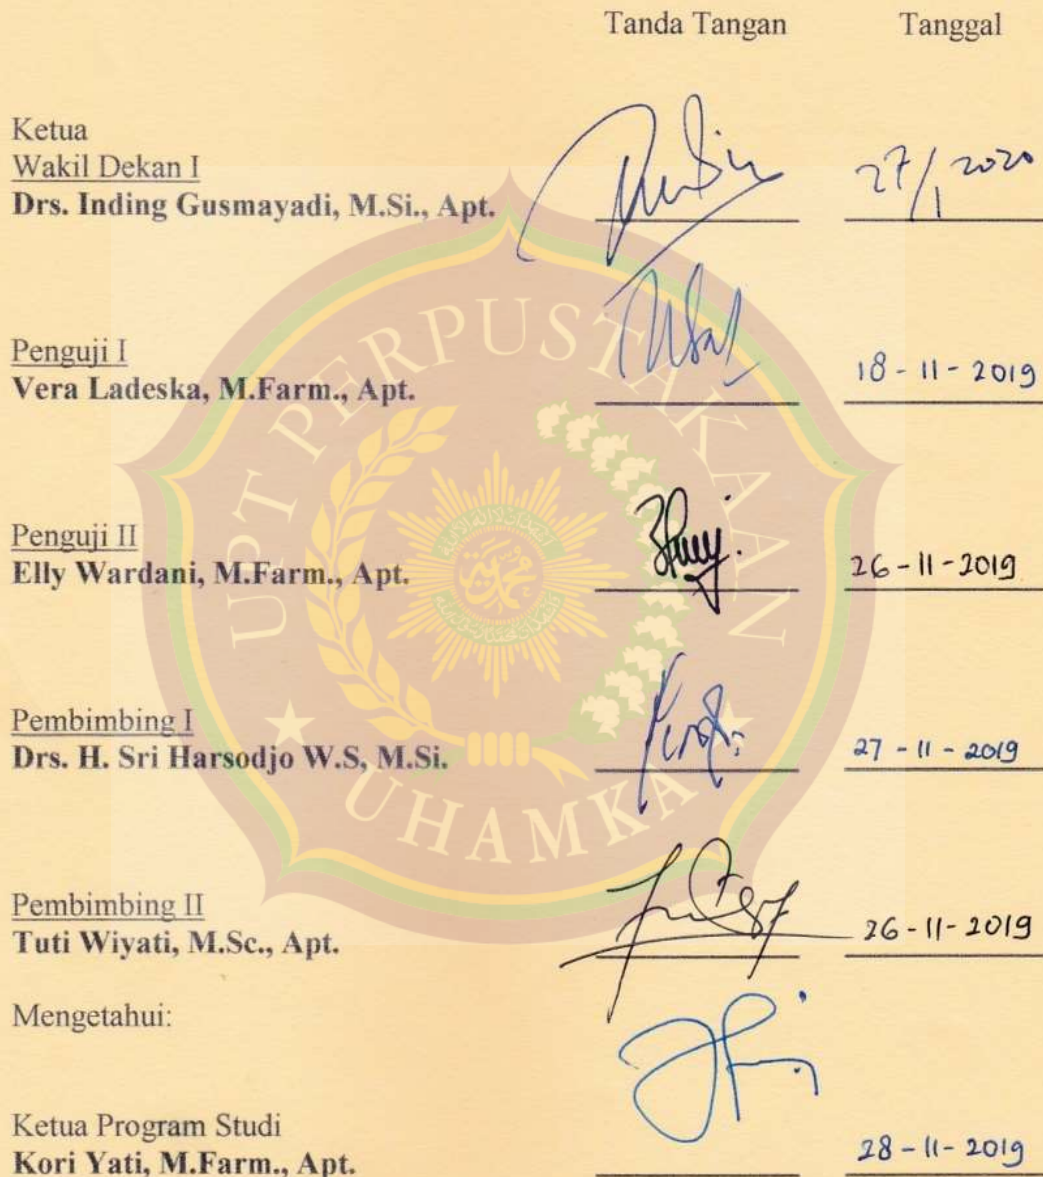 Tanda Tangan Tanggal
Ketua
Wakil Dekan I
Drs. Inding Gusmayadi, M.Si., Apt. 27/1 2020
Penguji I
Vera Ladeska, M.Farm., Apt. 18-11-2019
Penguji II
Elly Wardani, M.Farm., Apt. 26-11-2019
Pembimbing I
Drs. H. Sri Harsodjo W.S, M.Si. 27-11-2019
Pembimbing II
Tuti Wiyati, M.Sc., Apt. 26-11-2019
Mengetahui:
Ketua Program Studi
Kori Yati, M.Farm., Apt. 28-11-2019
UPT PERPUSTAKAAN
UHAMKA
محمدية